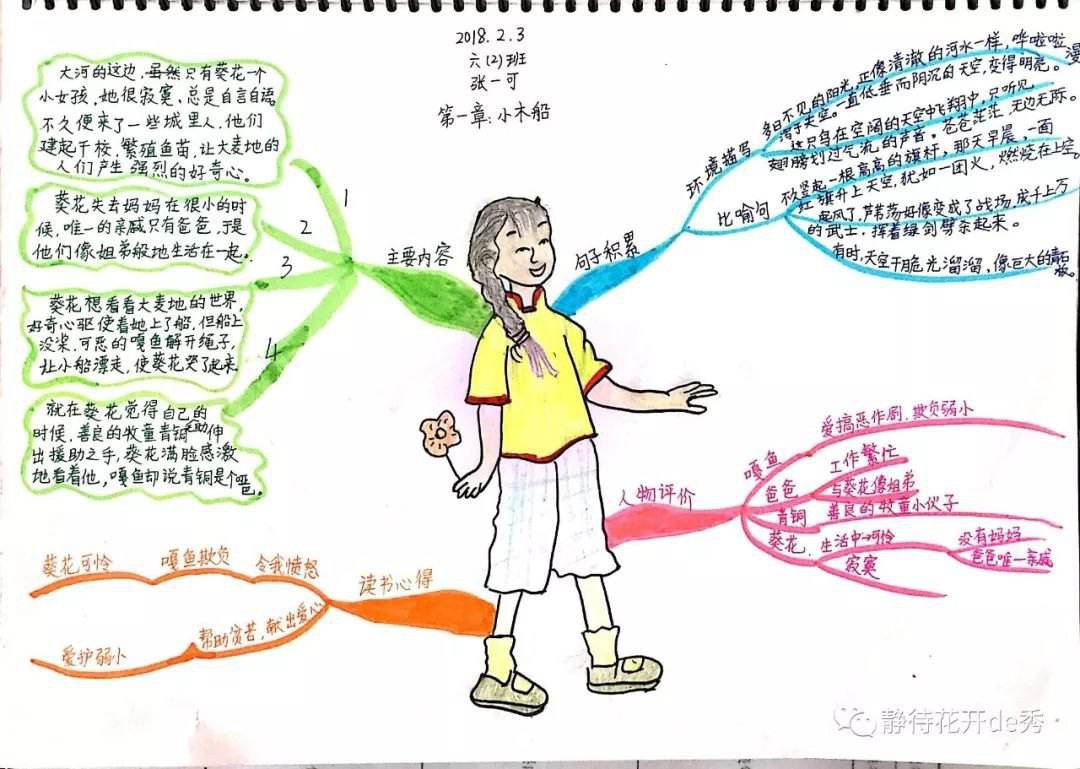 2018.2.3
六(2)班
张一可
第一章:小木船
大河的这边,虽然只有葵花一个
小女孩,她很寂寞、总是自言自语。
不久便来了一些城里人,他们
建起干校,繁殖鱼苗,让大麦地的
人们产生强烈的好奇心。
1
葵花失去妈妈在很小的时
候,唯一的亲戚只有爸爸,于是
他们像姐弟般地生活在一起。
2
葵花想看看大麦地的世界,
好奇心驱使着她上了船,但船上
没桨,可恶的嘎鱼解开绳子,
让小船漂走,使葵花哭了起来
3
就在葵花觉得自己的
时候,善良的牧童青铜伸
出援助之手,葵花满脸感激
地看着他,嘎鱼却说青铜是个哑巴。
4
主要内容
句子积累
环境描写
多日不见的阳光,正像清澈的河水一样,哗啦啦漫
泻于天空。一直低垂而阴沉的天空,变得明亮。
这只鸟在空阔的天空中飞翔中,只听见
翅膀划过气流的声音。苍苍茫茫,无边无际。
比喻句
竖起一根高高的旗杆,那天早晨,一面
红旗升上天空,犹如一团火,燃烧在上空。
起风了,芦苇荡好像变成了战场,成千上万
的武士,挥着绿剑劈杀起来。
有时,天空干脆光溜溜,像巨大的青石板。
人物评价
嘎鱼
爱搞恶作剧,欺负弱小
爸爸
工作繁忙
与葵花像姐弟
青铜
善良的牧童小伙子
葵花
生活中→可怜
没有妈妈
爸爸唯一亲戚
寂寞
读书心得
葵花可怜
嘎鱼欺负
令我愤怒
爱护弱小
帮助贫苦,献出爱心
静待花开de秀